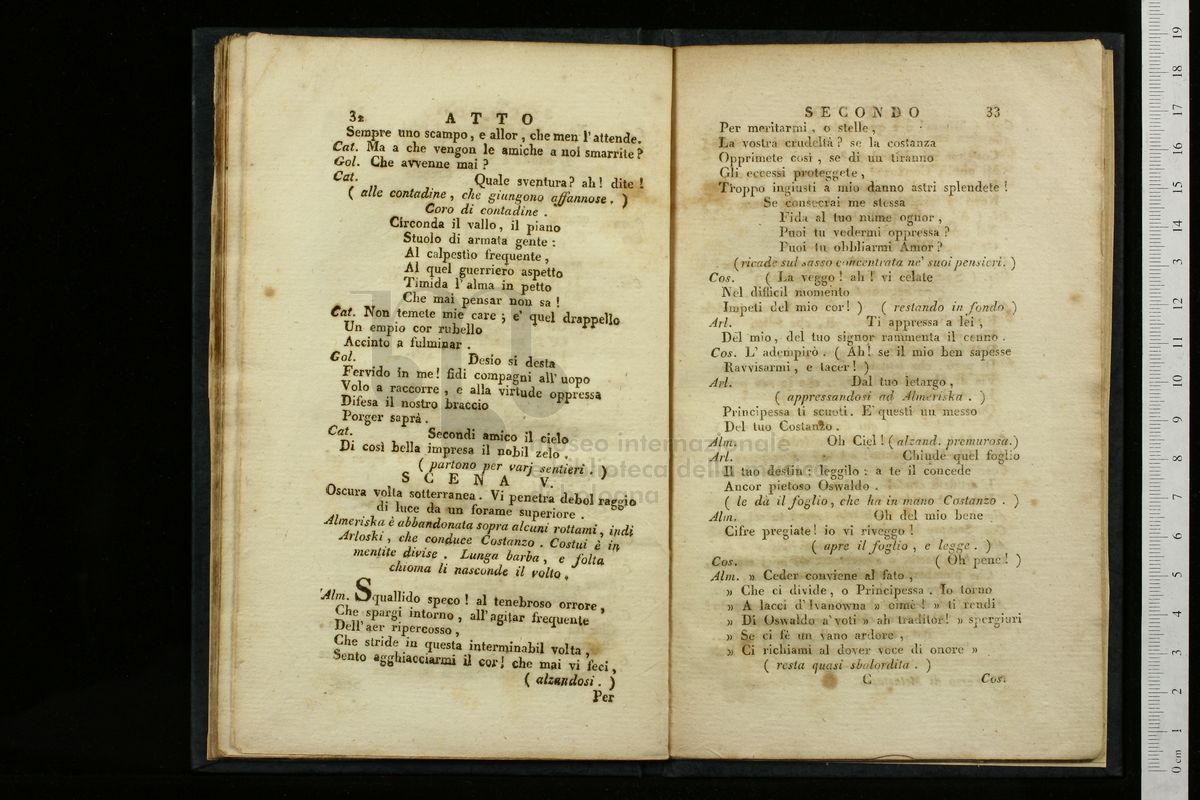 32 ATTO
Sempre uno scampo, e allor, che men l'attende.
Cat. Ma a che vengon le amiche a noi smarrite?
Gol. Che avvenne mai?
Cat. Quale sventura? ah! dite!
( alle contadine, che giungono affannose. )
Coro di contadine.
Circonda il vallo, il piano
Stuolo di armata gente:
Al calpestìo frequente,
Al quel guerriero aspetto
Timida l'alma in petto
Che mai pensar non sa!
Cat. Non temete mie care; e' quel drappello
Un empio cor rubello
Accinto a fulminar.
Gol. Desio si desta
Fervido in me! fidi compagni all' uopo
Volo a raccorre, e alla virtude oppressa
Difesa il nostro braccio
Porger saprà.
Cat. Secondi amico il cielo
Di così bella impresa il nobil zelo.
( partono per varj sentieri. )
SCENA V.
Oscura volta sotterranea. Vi penetra debol raggio
di luce da un forame superiore.
Almeriska è abbandonata sopra alcuni rottami, indi
Arloski, che conduce Costanzo. Costui è in
mentite divise. Lunga barba, e folta
chioma li nasconde il volto.
Alm. Squallido speco! al tenebroso orrore,
Che spargi intorno, all' agitar frequente
Dell' aer ripercosso,
Che stride in questa interminabil volta,
Sento agghiacciarmi il cor! che mai vi feci,
( alzandosi. )
Per
SECONDO 33
Per meritarmi, o stelle,
La vostra crudeltà? se la costanza
Opprimete così, se di un tiranno
Gli eccessi proteggete,
Troppo ingiusti a mio danno astri splendete!
Se consecrai me stessa
Fida al tuo nume ognor,
Puoi tu vedermi oppressa?
Puoi tu obbliarmi Amor?
(ricade sul sasso concentrata ne' suoi pensieri.)
Cos. ( La veggo! ah! vi celate
Nel difficil momento
Impeti del mio cor! ) ( restando in fondo )
Arl. Ti appressa a lei;
Del mio, del tuo signor rammenta il cenno.
Cos. L' adempirò. ( Ah! se il mio ben sapesse
Ravvisarmi, e tacer! )
Arl. Dal tuo letargo,
( appressandosi ad Almeriska. )
Principessa ti scuoti. E' questi un messo
Del tuo Costanzo.
Alm. Oh Ciel! (alzand. premurosa.)
Arl. Chiude quel foglio
Il tuo destin: leggilo: a te il concede
Ancor pietoso Oswaldo.
( le dà il foglio, che ha in mano Costanzo. )
Alm. Oh del mio bene
Cifre pregiate! io vi riveggo!
( apre il foglio, e legge. )
Cos. ( Oh pene! )
Alm. » Ceder conviene al fato,
» Che ci divide, o Principessa. Io torno
» A lacci d' Ivanowna » oimè! » ti rendi
» Di Oswaldo a' voti » ah traditor! » spergiuri
» Se ci fè un vano ardore,
» Ci richiami al dover voce di onore »
( resta quasi sbalordita. )
C Cos.
museo internazionale
biblioteca della musica